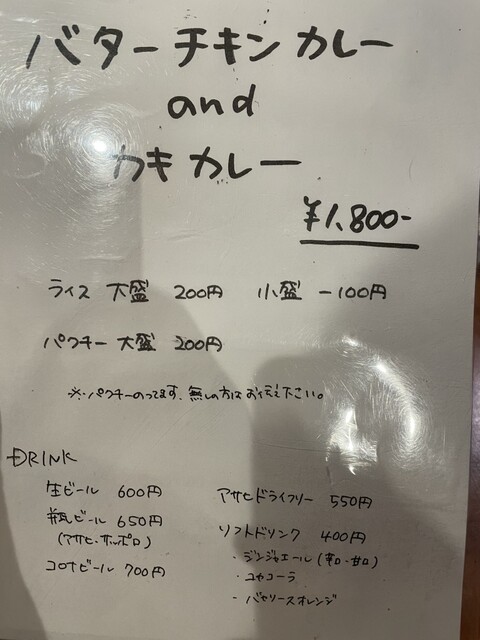 バターチキンカレー
and
カキカレー
¥1,800-
ライス 大盛 200円 小盛 -100円
パクチー 大盛 200円
※・パクチーのってます、無しの方はお伝え下さい。
DRINK
生ビール 600円
瓶ビール 650円
(アサヒ・サッポロ)
コロナビール 700円
アサヒドライフリー 550円
ソフトドリンク 400円
・ジンジャエール (辛口・甘口)
・コカコーラ
・バヤリースオレンジ